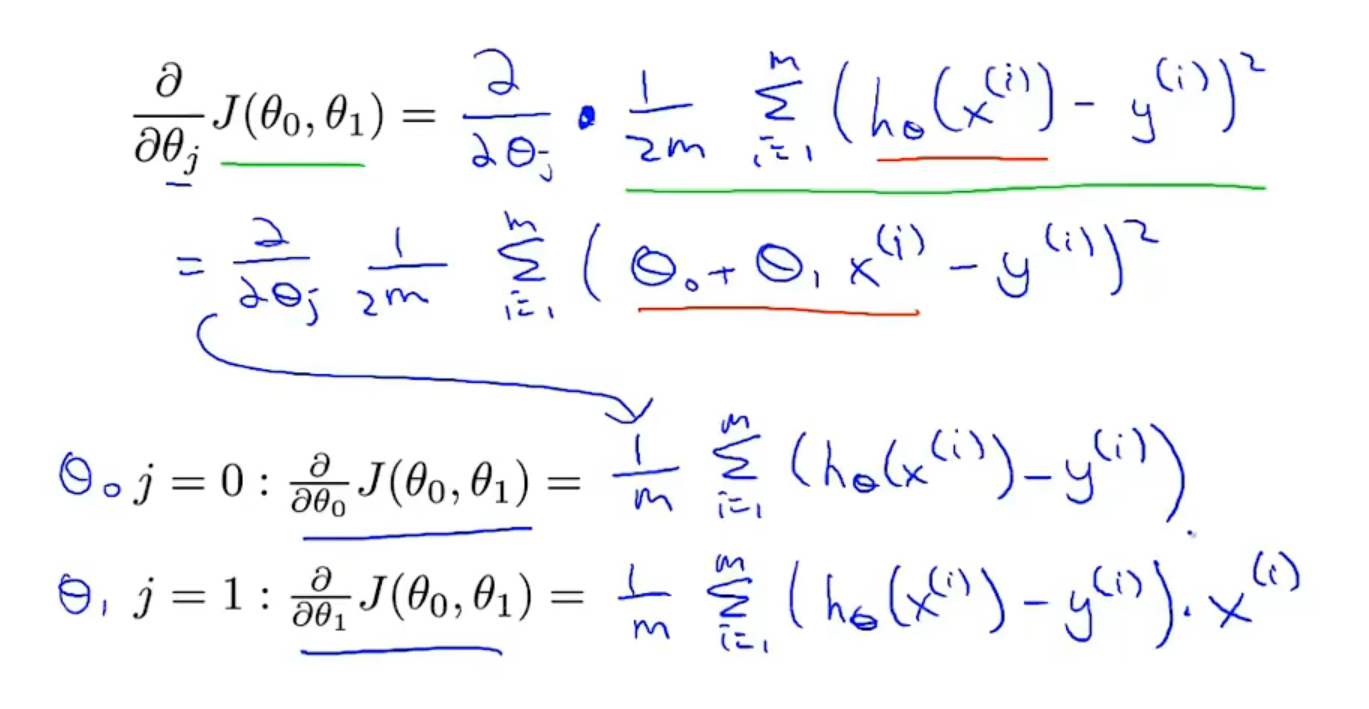 ∂/∂θ_j J(θ_0, θ_1) = ∂/∂θ_j · 1/2m ∑_{i=1}^{m} (h_θ(x^{(i)}) - y^{(i)})^2
= ∂/∂θ_j 1/2m ∑_{i=1}^{m} (θ_0 + θ_1 x^{(i)} - y^{(i)})^2
θ_0 j = 0 : ∂/∂θ_0 J(θ_0, θ_1) = 1/m ∑_{i=1}^{m} (h_θ(x^{(i)}) - y^{(i)}).
θ_1 j = 1 : ∂/∂θ_1 J(θ_0, θ_1) = 1/m ∑_{i=1}^{m} (h_θ(x^{(i)}) - y^{(i)}) · x^{(i)}